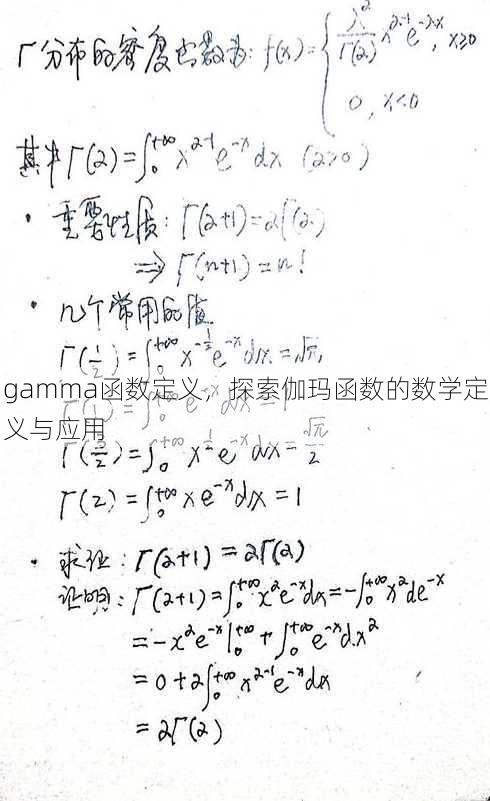 Γ分布的密度函数为: f(x)={ λ^α/Γ(α) x^(α-1) e^(-λx), x≥0
0, x<0
其中Γ(α)=∫₀^(+∞) x^(α-1) e^(-x) dx (α>0)
· 重要性质: Γ(α+1)=αΓ(α)
⇒ Γ(n+1)=n!
· 几个常用的值
Γ(1/2)=∫₀^(+∞) x^(-1/2) e^(-x) dx=√π,
gamma函数定义，探索伽玛函数的数学定
义与应用
Γ(3/2)=∫₀^(+∞) x^(1/2) e^(-x) dx=√π/2
Γ(2)=∫₀^(+∞) x e^(-x) dx=1
· 求证: Γ(α+1)=αΓ(α)
证明: Γ(α+1)=∫₀^(+∞) x^α e^(-x) dx=-∫₀^(+∞) x^α de^(-x)
=-x^α e^(-x)|₀^(+∞)+∫₀^(+∞) e^(-x) dx^α
=0+α∫₀^(+∞) x^(α-1) e^(-x) dx
=αΓ(α)